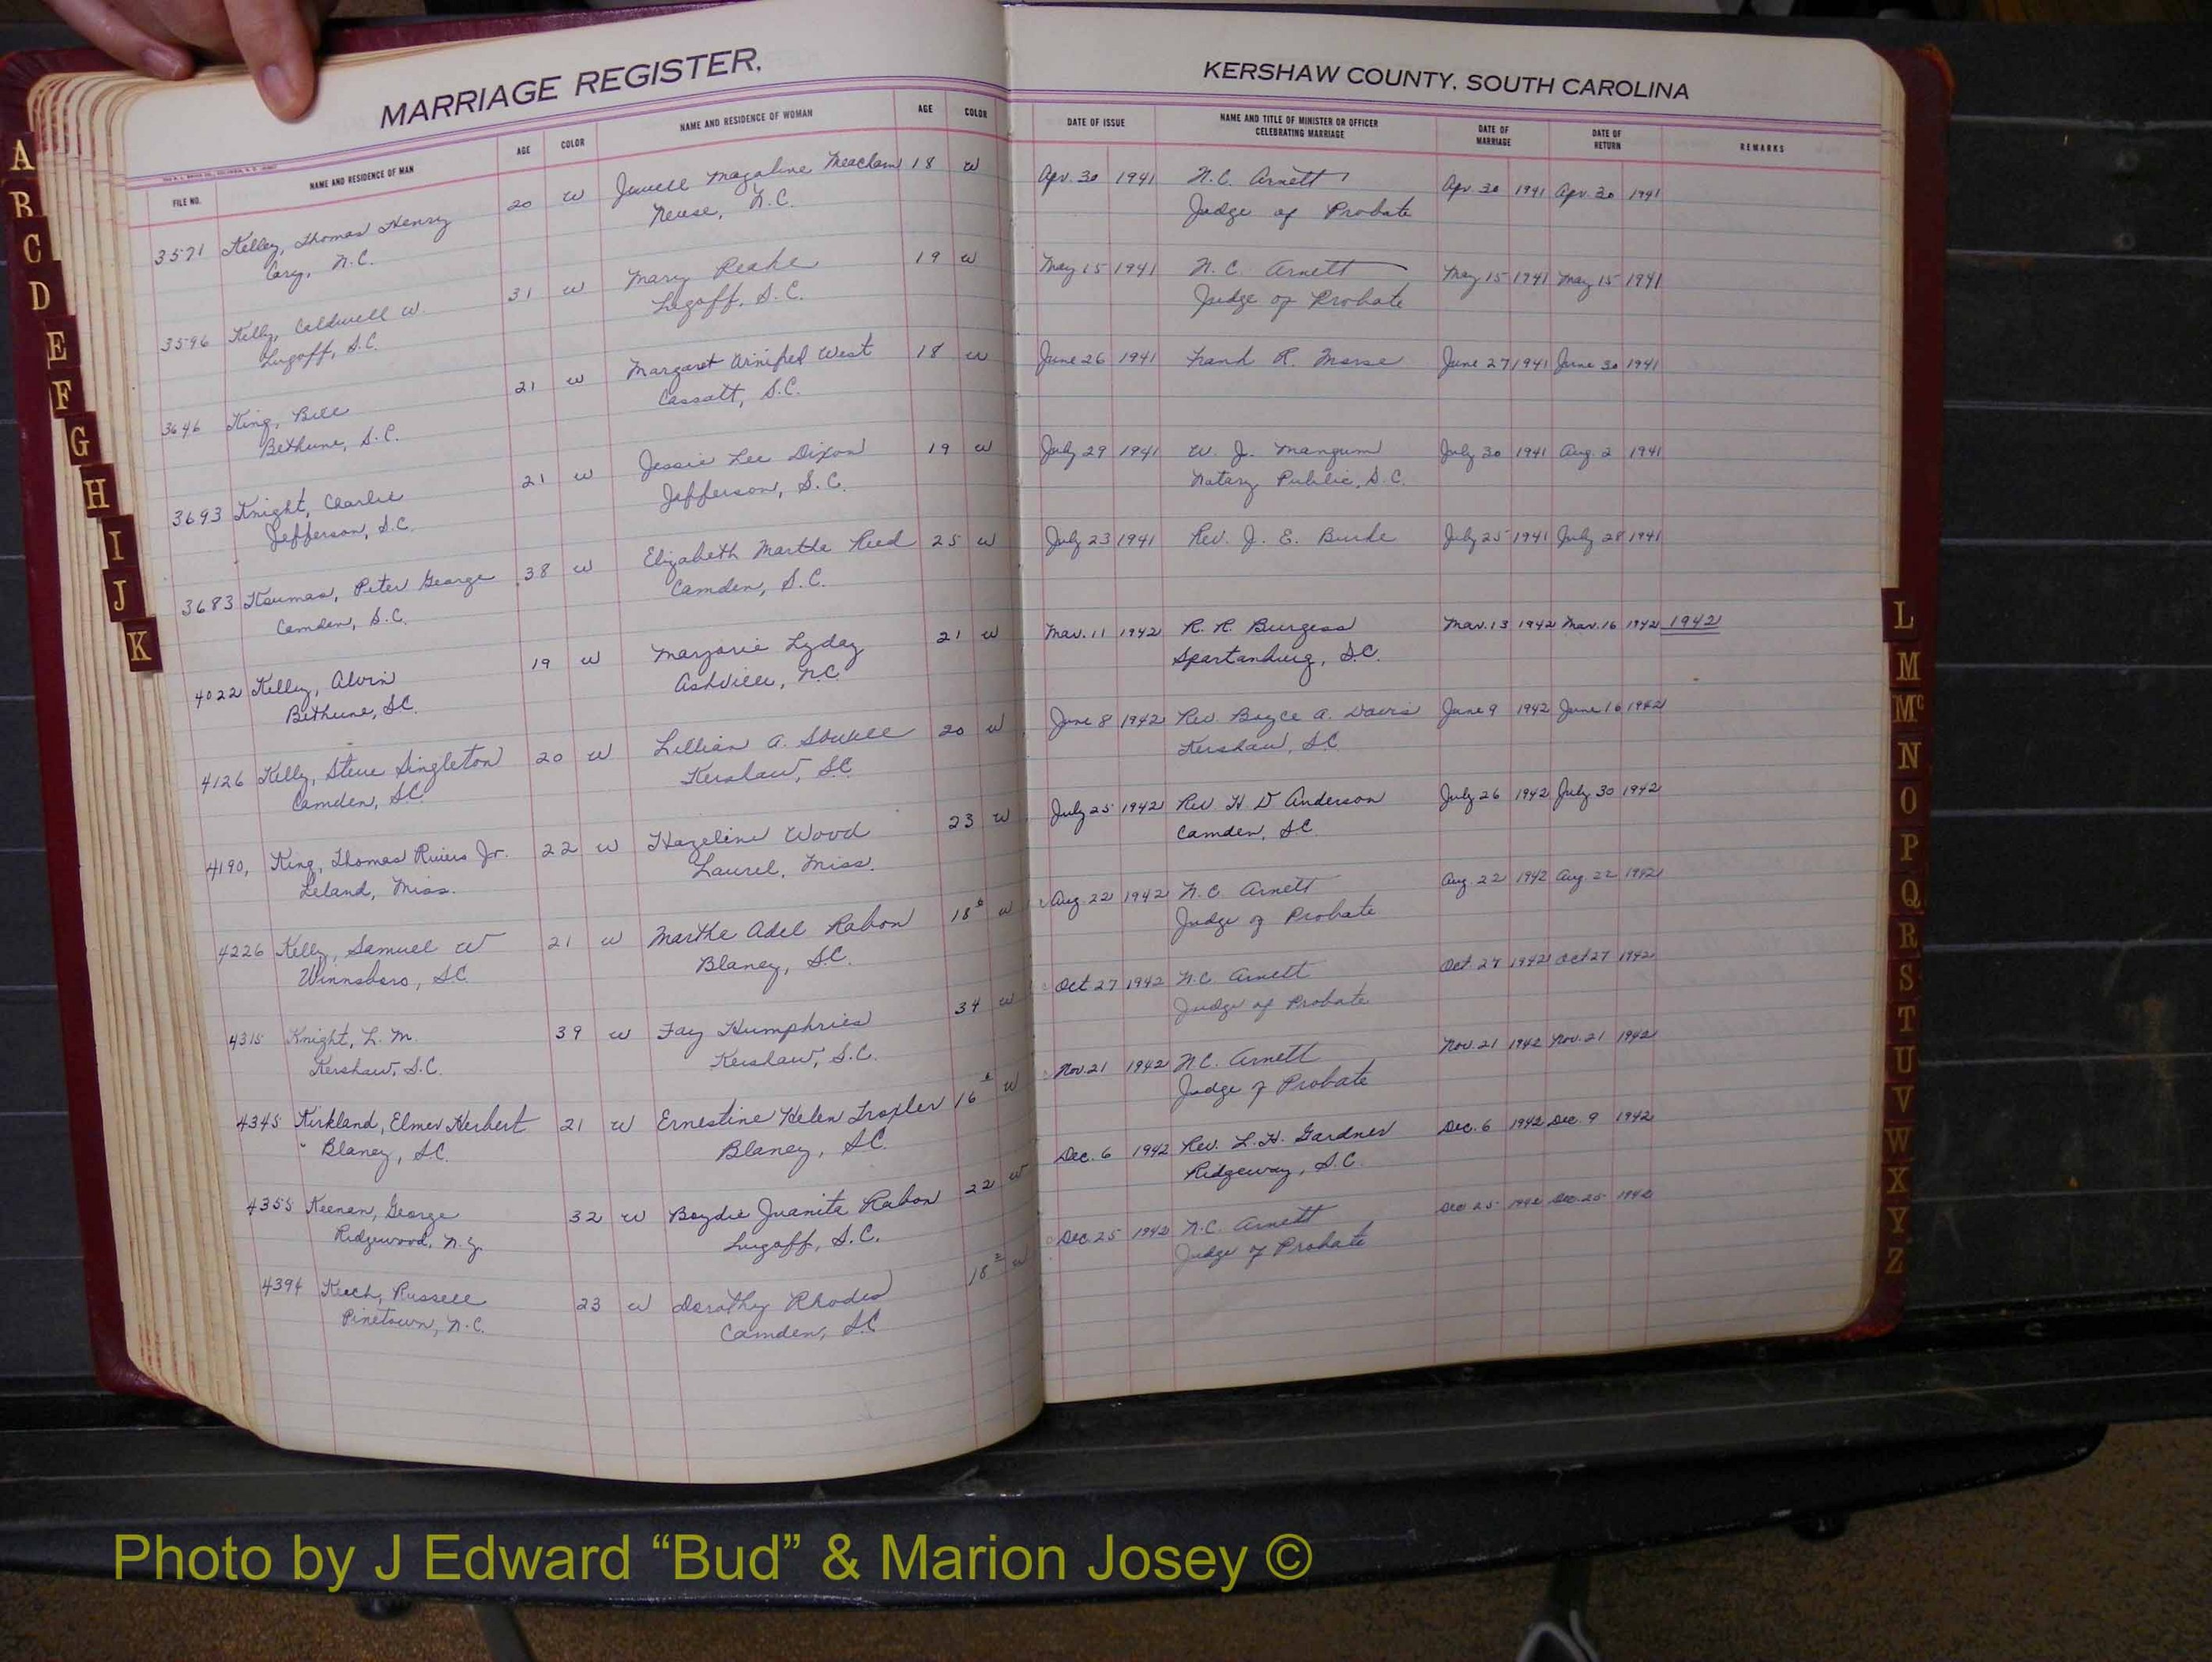 MARRIAGE REGISTER,
KERSHAW COUNTY, SOUTH CAROLINA
FILE NO. NAME AND RESIDENCE OF MAN AGE COLOR NAME AND RESIDENCE OF WOMAN AGE COLOR DATE OF ISSUE NAME AND TITLE OF MINISTER OR OFFICER CELEBRATING MARRIAGE DATE OF MARRIAGE DATE OF RETURN REMARKS
3571 Kelley, Thomas Henry 20 W Jewell Magaline Meacham 18 W Apr. 30 1941 N.C. Arnett Apr. 30 1941 Apr. 30 1941
Cary, N.C. Neuse, N.C. Judge of Probate
3596 Kelly, Caldwell W. 31 W Mary Peake 19 W May 15 1941 N.C. Arnett May 15 1941 May 15 1941
Lugoff, S.C. Lugoff, S.C. Judge of Probate
3646 King, Bill 21 W Margaret West 18 W June 26 1941 Frank R. Morse June 27 1941 June 30 1941
Bethune, S.C. Cassatt, S.C.
3693 Knight, Charlie 21 W Jessie Lee Dixon 19 W July 29 1941 W. J. Mangum July 30 1941 Aug. 2 1941
Jefferson, S.C. Jefferson, S.C. Notary Public, S.C.
3683 Koumas, Peter George 38 W Elizabeth Martha Reed 25 W July 23 1941 Rev. J. E. July 25 1941 July 28 1941
Camden, S.C. Camden, S.C.
4022 Kelley, Alvin 19 W Marjorie Lyday 21 W Mar. 11 1942 R. R. Burgess Mar. 13 1942 Mar. 16 1942 1942
Bethune, S.C. Ashville, N.C. Spartanburg, S.C.
4126 Kelly, Steve Singleton 20 W Lillian A. Sowell 20 W June 8 1942 Rev. Boyce A. Davis June 9 1942 June 16 1942
Camden, S.C. Kershaw, S.C. Kershaw, S.C.
4190, King, Thomas Rivers Jr. 22 W Hazeline Wood 23 W July 25 1942 Rev. H D Anderson July 26 1942 July 30 1942
Leland, Miss. Laurel, Miss. Camden, S.C.
4226 Kelly, Samuel W 21 W Martha Adel Rabon 18 W Aug. 22 1942 N.C. Arnett Aug. 22 1942 Aug. 22 1942
Winnsboro, S.C. Blaney, S.C. Judge of Probate
4315 Knight, L. M. 39 W Fay Humphries 34 W Oct 27 1942 N.C. Arnett Oct. 27 1942 Oct 27 1942
Kershaw, S.C. Kershaw, S.C. Judge of Probate
4345 Kirkland, Elmer Herbert 21 W Ernestine Helen Troxler 16 W Nov. 21 1942 N.C. Arnett Nov. 21 1942 Nov. 21 1942
Blaney, S.C. Blaney, S.C. Judge of Probate
4355 Keenan, George 32 W Boydie Juanita Rabon 22 W Dec. 6 1942 Rev. L.H. Gardner Dec. 6 1942 Dec. 9 1942
Ridgewood, N.Y. Lugoff, S.C. Ridgeway, S.C.
4394 Keech, Russell 23 W Dorothy Rhodes 18 W Dec. 25 1942 N.C. Arnett Dec 25 1942 Dec. 25 1942
Pinetown, N.C. Camden, S.C. Judge of Probate
A
B
C
D
E
F
G
H
I
J
K
L
M
Mc
N
O
P
Q
R
S
T
U
V
W
X
Y
Z
Photo by J Edward “Bud” & Marion Josey ©